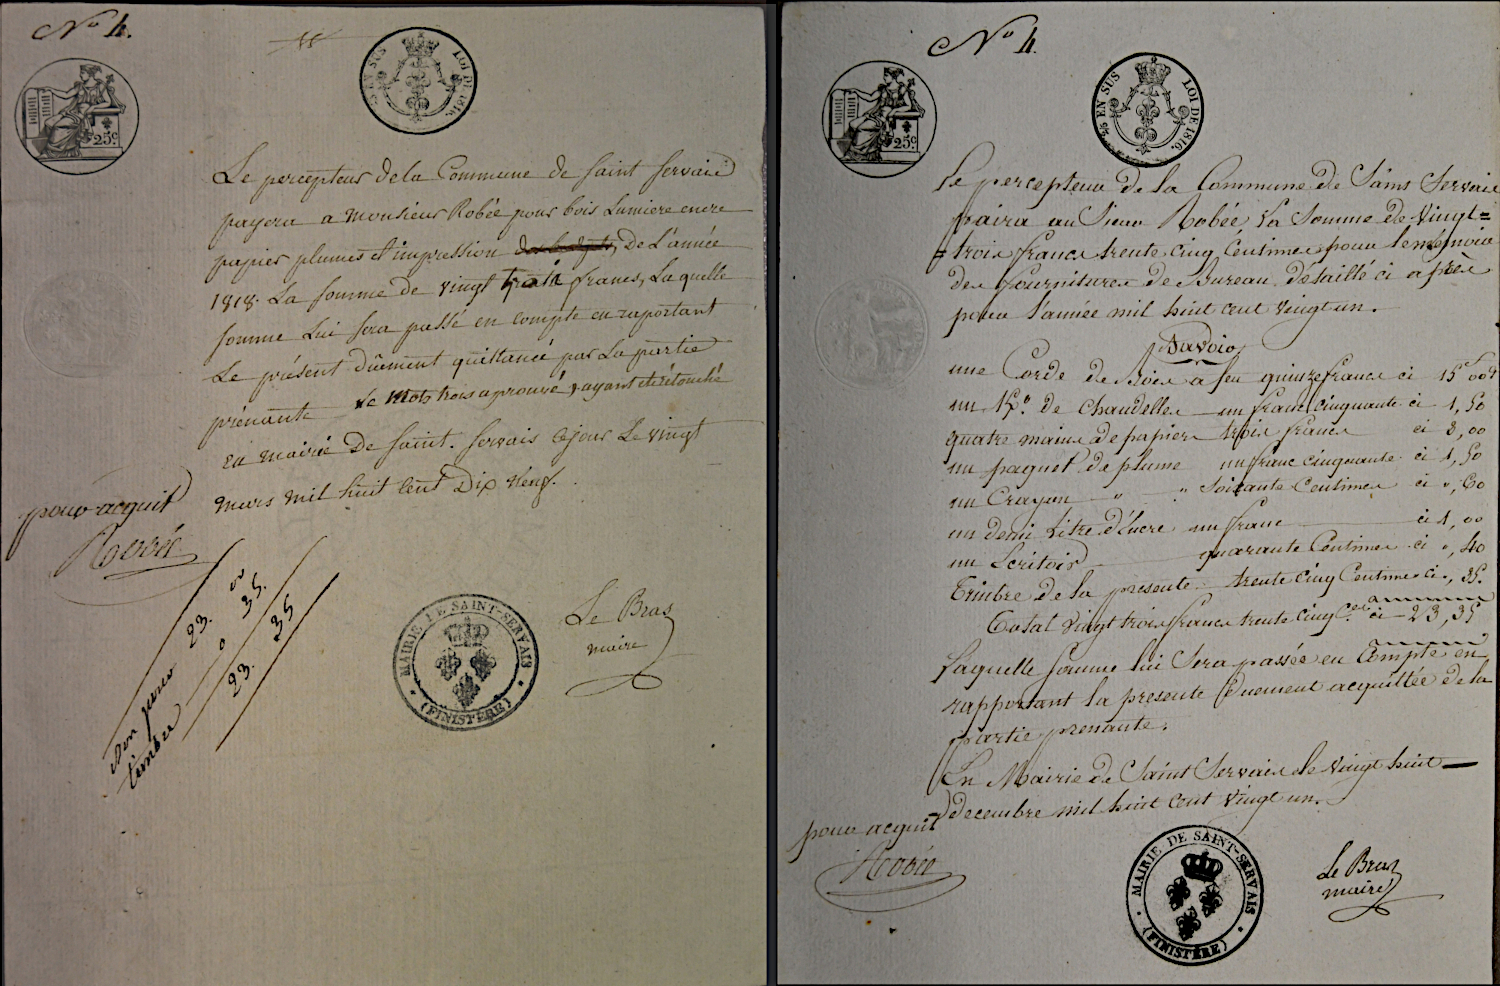 N° 4.
25c
EN SUS LOI DE 1816.
Le percepteur de la Commune de Saint Servais
payera a Monsieur Robée pour bois Lumiere encre
papier plumes et impression de L'année
1818. La somme de vingt trois francs, La quelle
somme Lui sera passé en compte en raportant
Le présent dûement quittancé par La partie
prénante Le Mots trois aprouvé, ayant été rétouché
En mairie de Saint. Servais cejour Le vingt
mars mil huit Cent Dix Neuf.
pour acquit
Robée
23. 00
timbre 0 35.
23. 35
MAIRIE DE SAINT-SERVAIS
(FINISTÈRE)
Le Bras
maire
N° 4.
25c
EN SUS LOI DE 1816.
Le percepteur de la Commune de Saint Servais
paira au Sieur Robée la Somme de Vingt=
=trois francs trente cinq Centimes pour le mémoire
des fournitures de Bureau détaillé ci après
pour l'année mil huit cent vingt un.
Savoir
une Corde de Bois a feu quinze francs ci 15f 00c
un 1/2 K° de Chandelles un franc cinquante ci 1,50
quatre mains de papier trois francs ci 3,00
un paquet de plume un franc cinquante ci 1,50
un Crayon " " Soixante Centimes ci ", 60
un demi Litre d'Encre un franc ci 1,00
un Ecritoir quarante Centimes ci ", 40
Timbre de la presente trente cinq Centimes ci ", 35.
Total vingt trois francs trente cinq Ces ci 23,35
laquelle somme lui Sera passée en Compte en
rapportant la presente duement acquittée de la
partie prenante.
En Mairie de Saint Servais le vingt huit
Decembre mil huit cent vingt un.
pour acquit
Robée
MAIRIE DE SAINT-SERVAIS
(FINISTÈRE)
Le Bras
maire